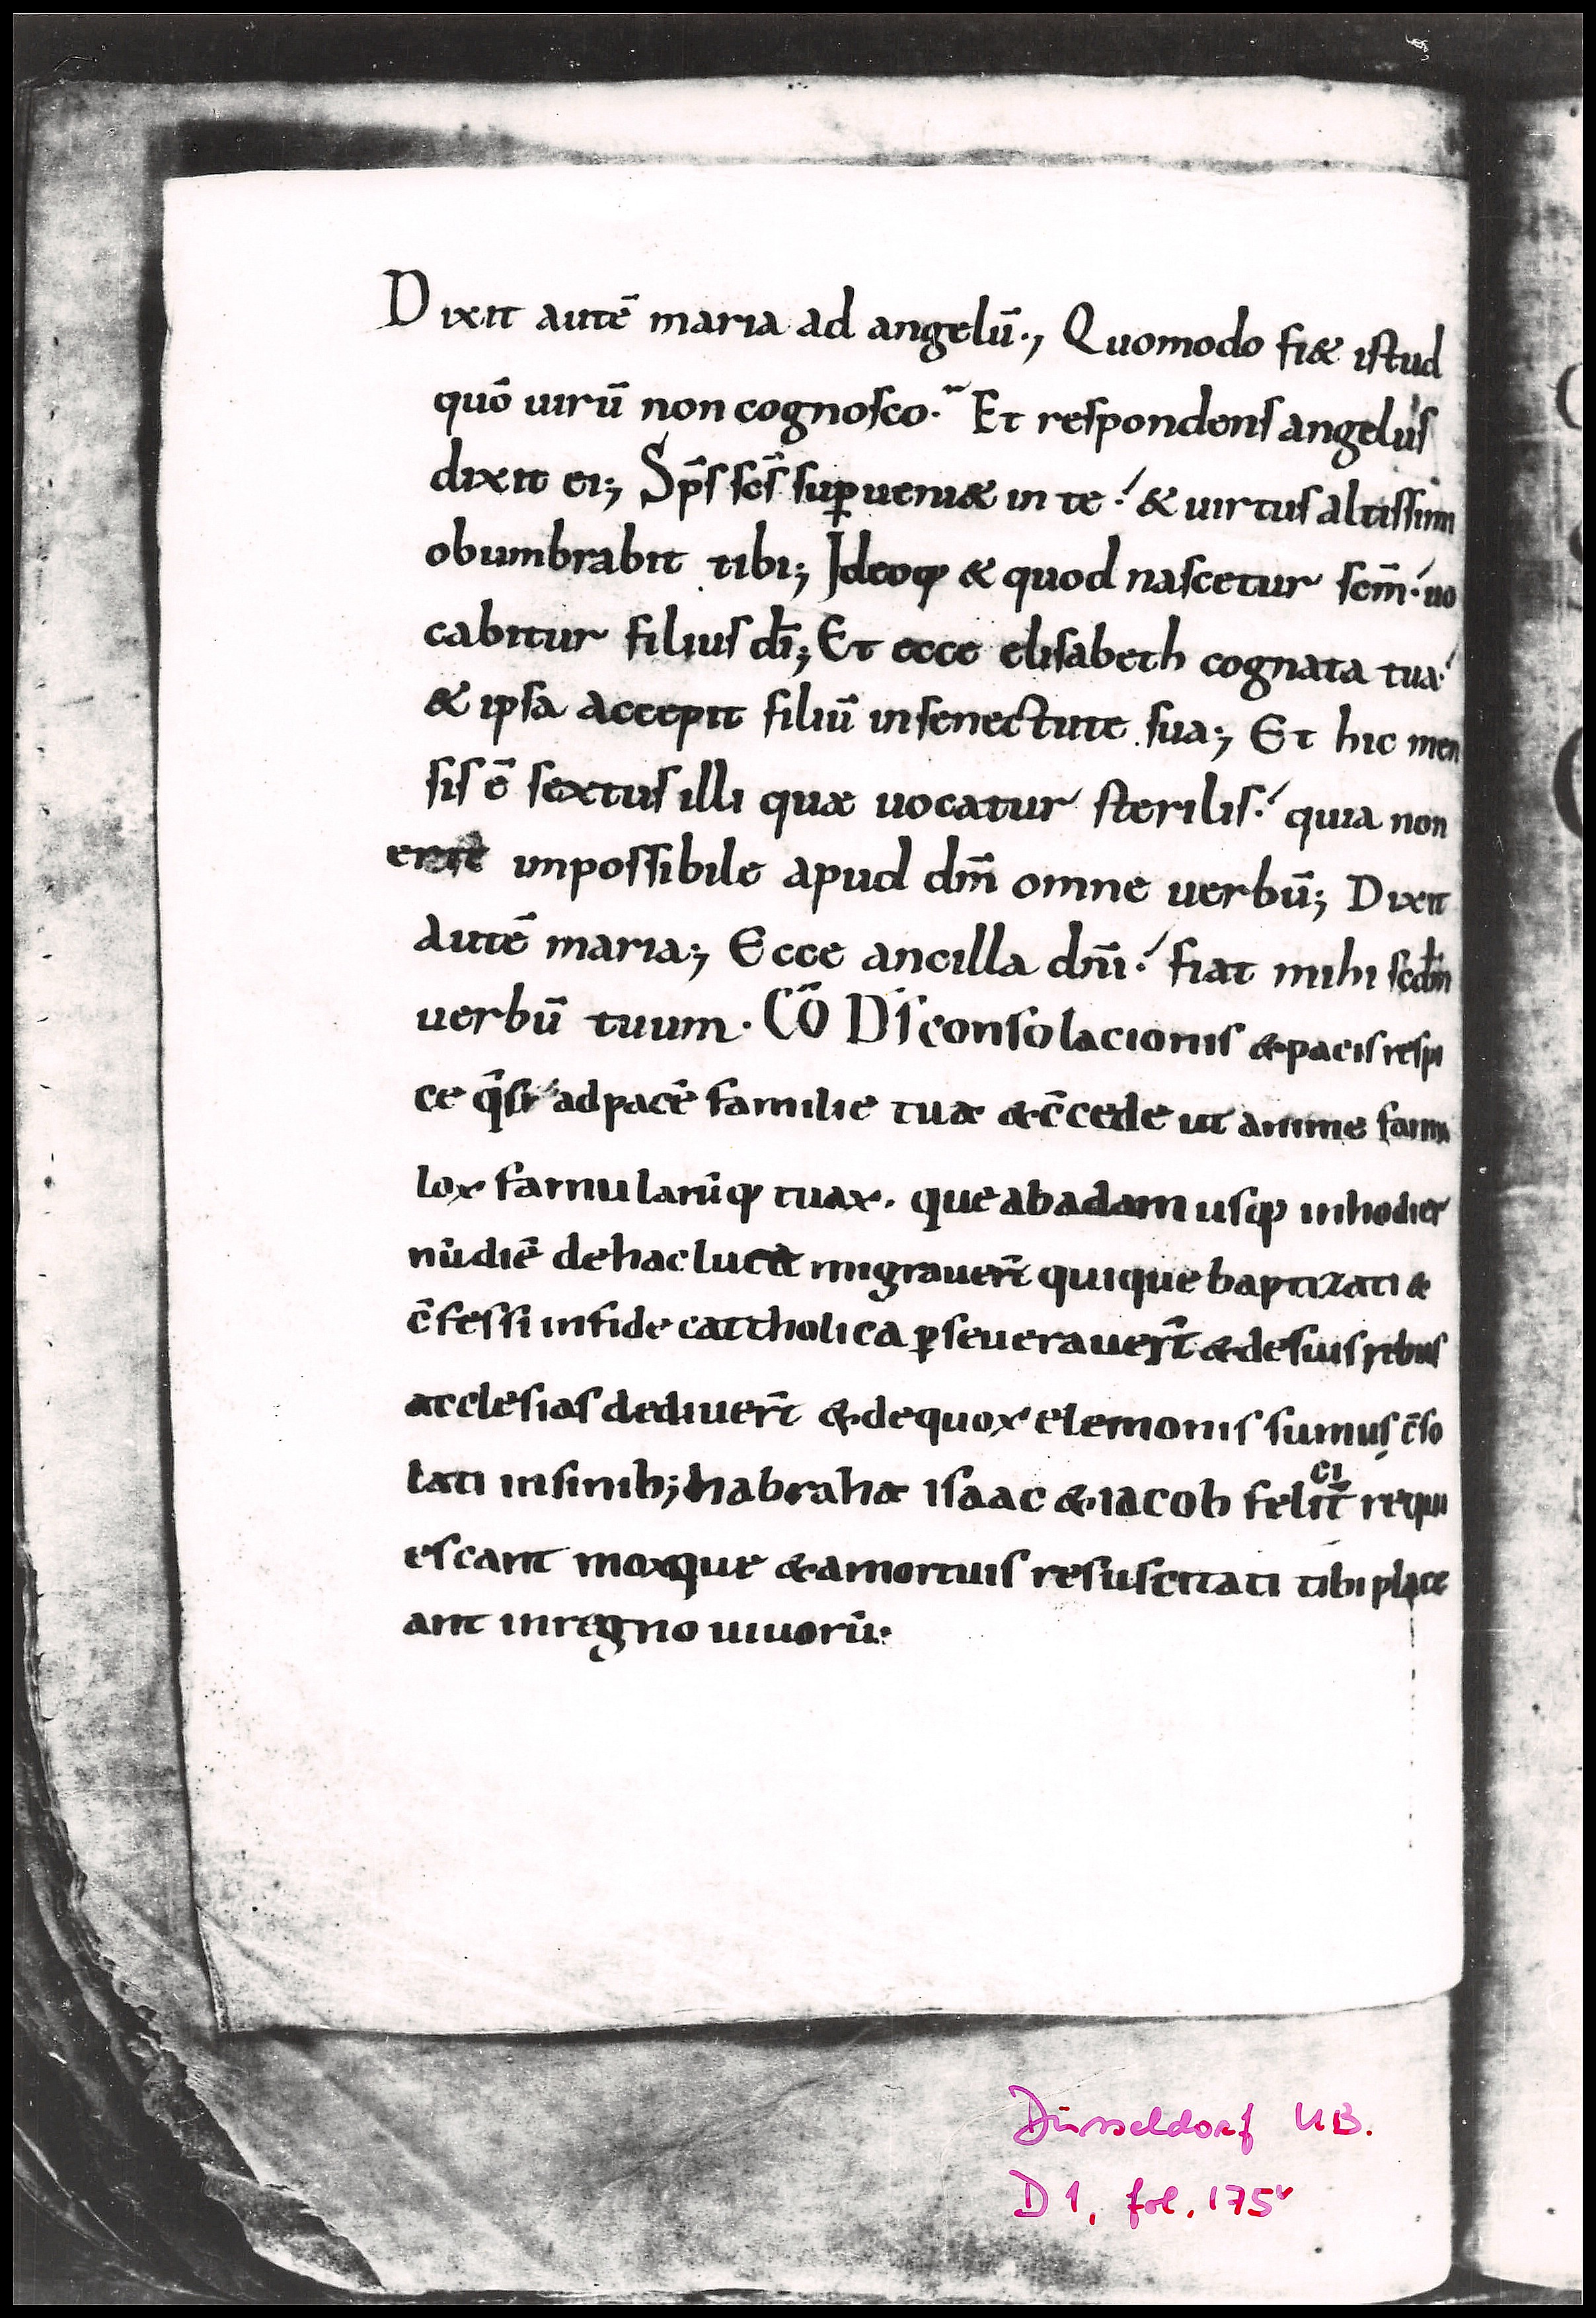 Dixit autē maria ad angelū., Quomodo fi& istud
quō uirū non cognosco. Et respondens angelus
dixit ei; Sp̄s sc̄s sup̲ueni& in te & uirtus altissimi
obumbrabit tibi; Ideoq & quod nascetur sc̄m uo
cabitur filius dī; Et ecce elisabeth cognata tua
& ipsa accepit filiū insenectute sua; Et hic men
sis ē sextus illi quæ uocatur sterilis quia non
impossibile apud dm̄ omne uerbū; Dixit
autē maria; Ecce ancilla dn̄i fiat mihi scdm̄
uerbū tuum. CŌ Ds̄ consolacionis & pacis respi
ce q̄s ad pacē familie tuæ & c̄cede ut anime famu
loꝝ famularūq tuaꝝ. que abadam usq inhodier
nū diē dehac luce migrauer̄t quique baptizati &
c̄fessi infide cattholica p̲seuerauer̄t & desuis rebus
æcclesias dediuer̄t & dequoꝝ elemonis sumus c̄so
lati insinib; habrahæ isaac & iacob felicit̄ requi
escant moxque & amortuis resuscitati tibi place
ant inregno uiuorū
Düsseldorf UB.
D 1, fol. 175v